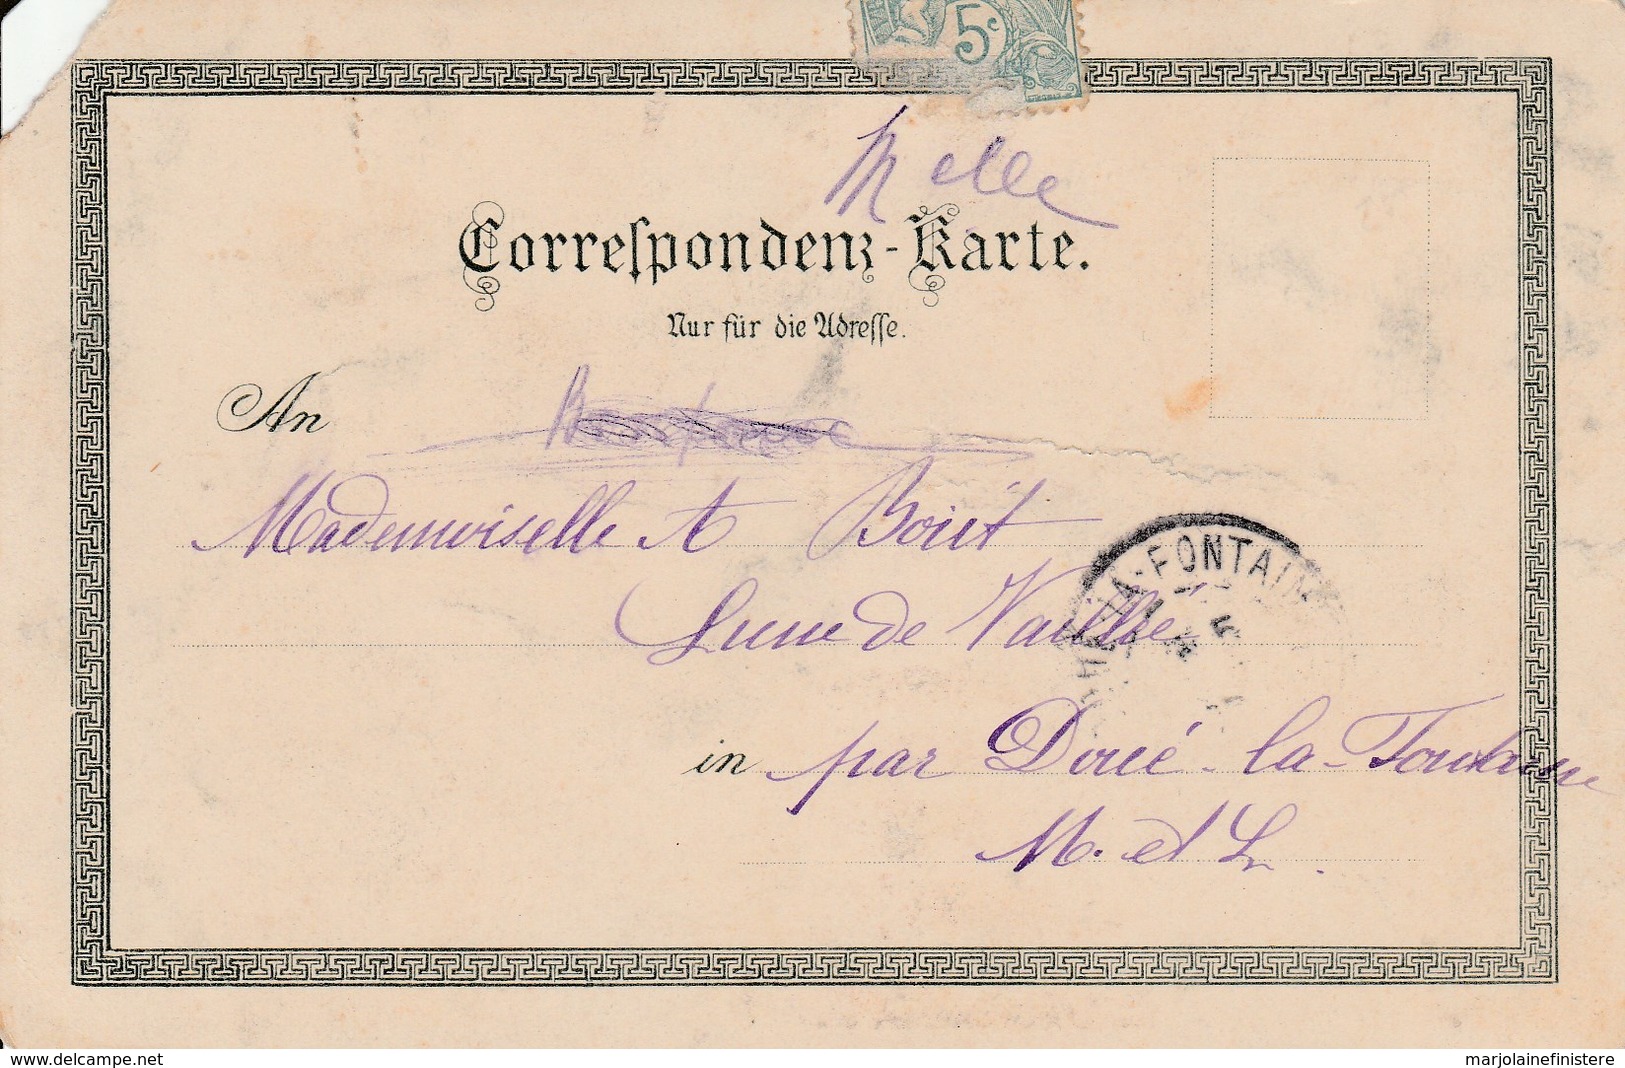 5c
Melle
Correspondenz-Karte.
Nur für die Adresse.
An
Mademoiselle A Boiit
de
LA-FONTAINE
in par Doué-la-Fontaine
M. et L.
www.delcampe.net
marjolainefinistere